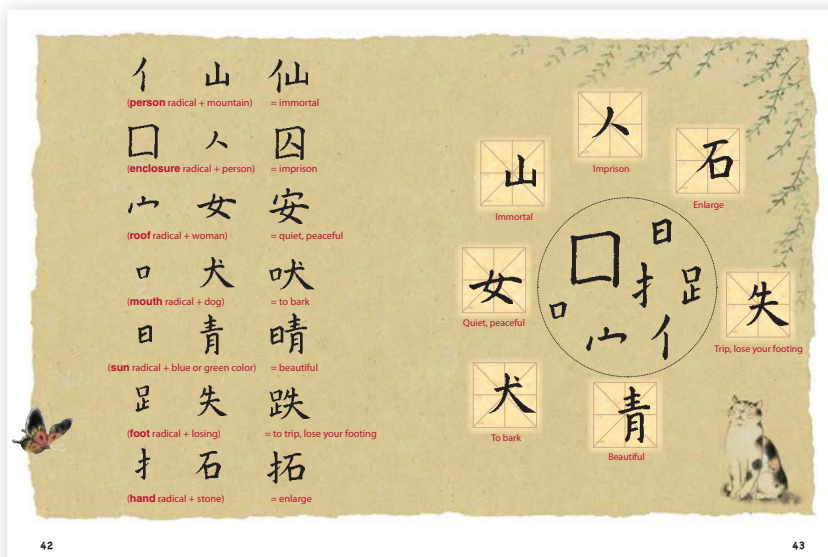 亻 山 仙
(person radical + mountain) = immortal
囗 人 囚
(enclosure radical + person) = imprison
宀 女 安
(roof radical + woman) = quiet, peaceful
口 犬 吠
(mouth radical + dog) = to bark
日 青 晴
(sun radical + blue or green color) = beautiful
𧾷 失 跌
(foot radical + losing) = to trip, lose your footing
扌 石 拓
(hand radical + stone) = enlarge
42
人
Imprison
石
Enlarge
山
Immortal
女
Quiet, peaceful
失
Trip, lose your footing
犬
To bark
青
Beautiful
囗 日
扌 𧾷
口 宀 亻
43